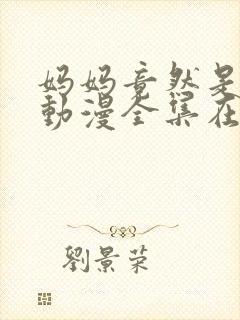 妈妈竟然是
動漫全集在
劉景荣